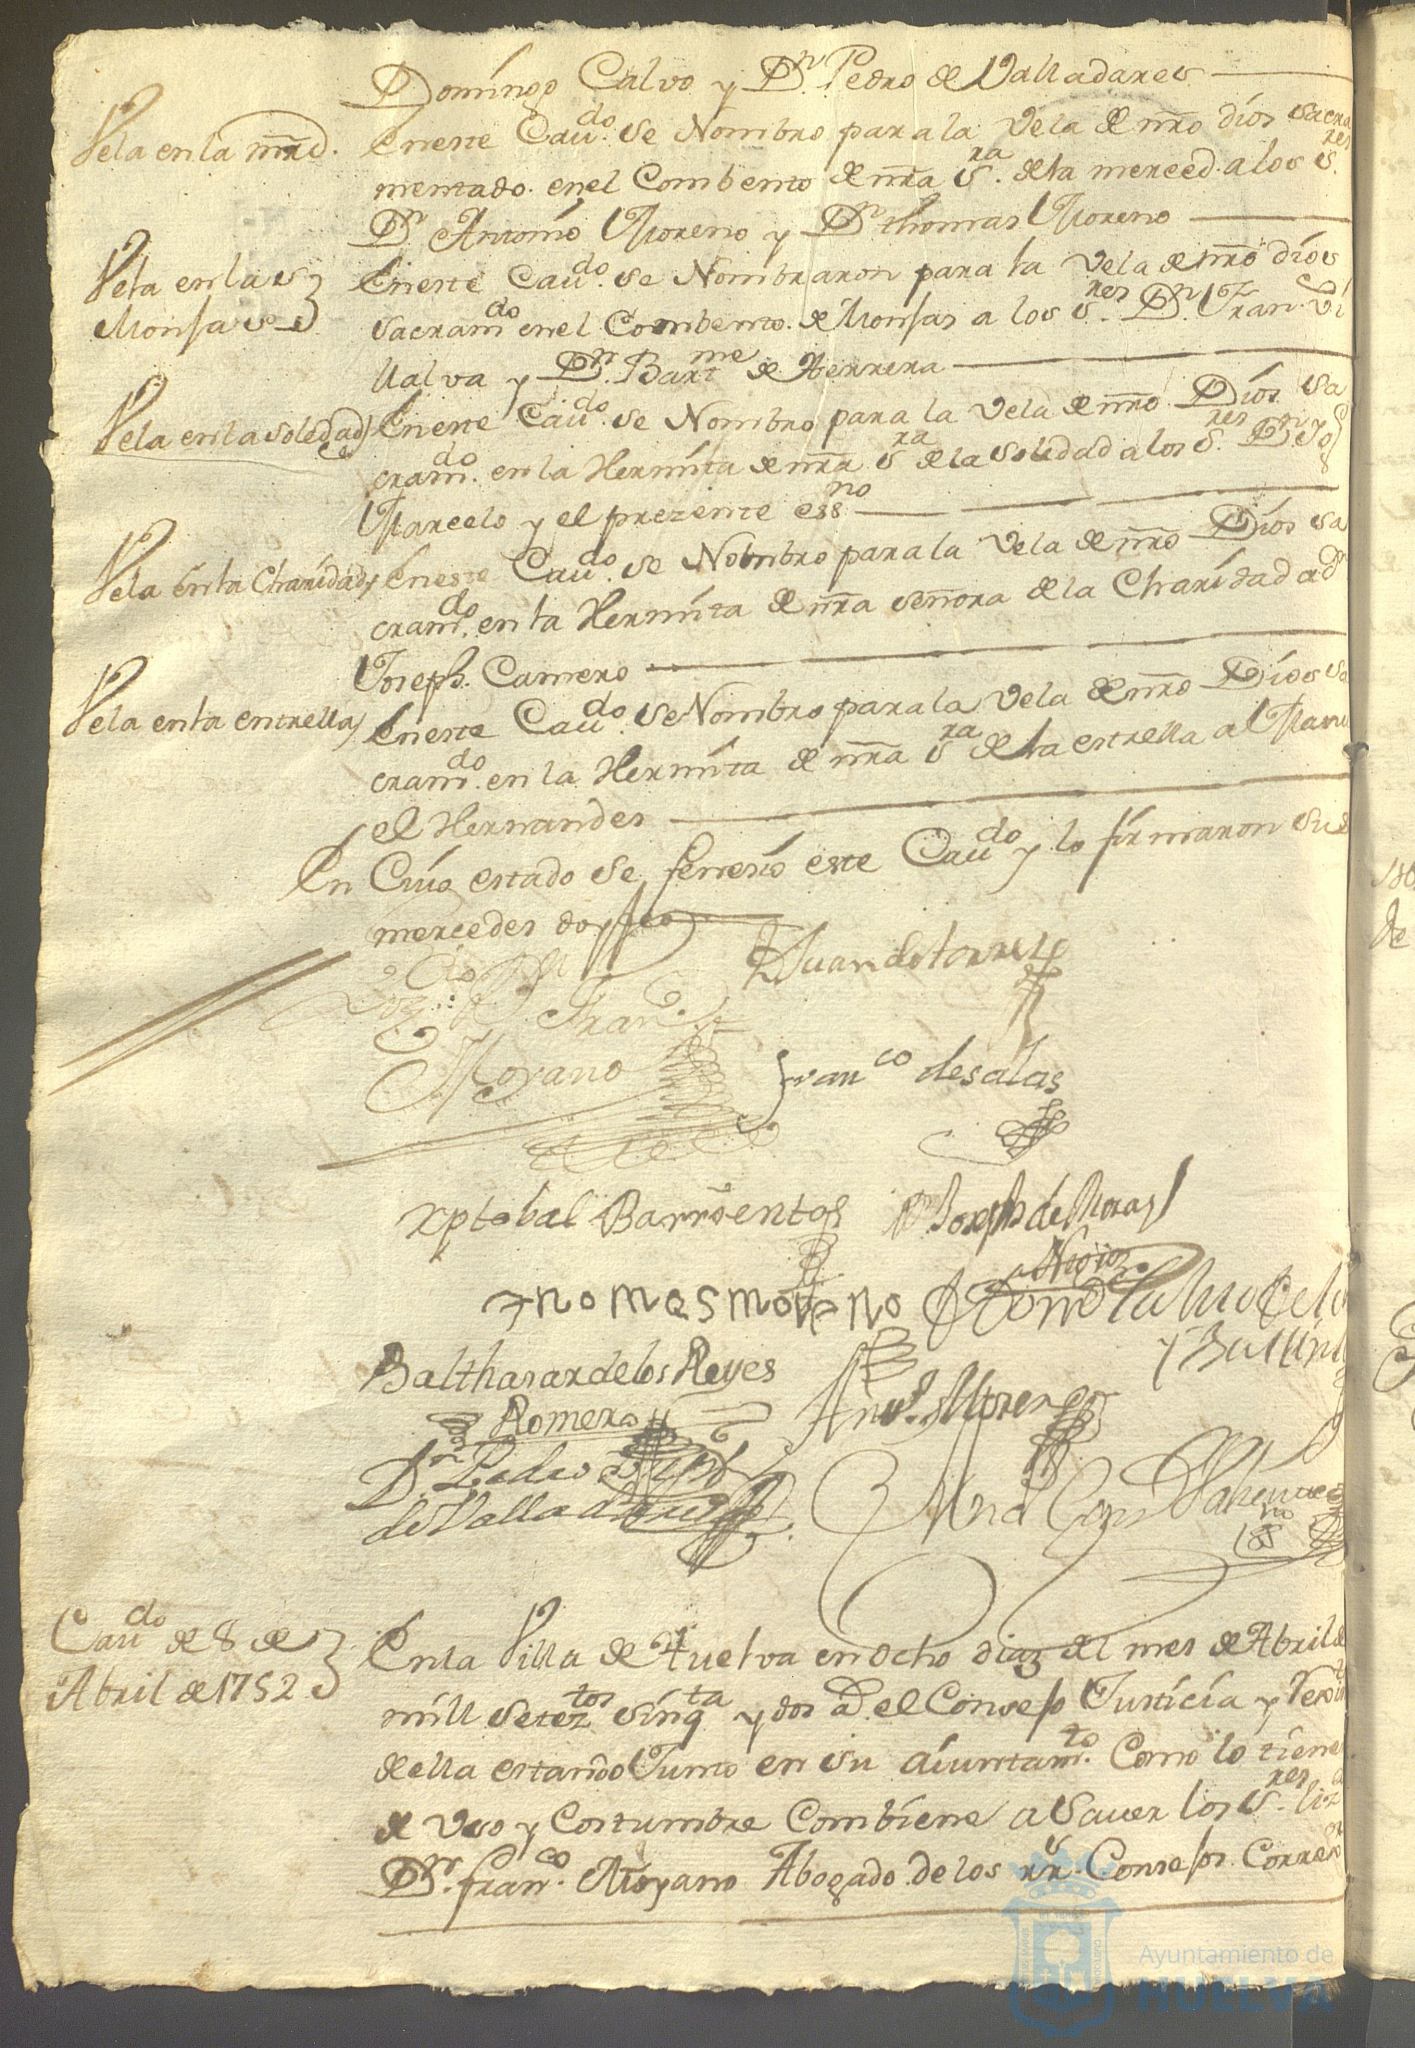 Domingo Calvo y Dn. Pedro de Valladares
Vela en la mrd.
En este Caudo. se Nombro para la Vela de nro dios sacra
mentado en el Combento de nra Sra. de la merced a los Sres
Dn. Antonio Moreno y Dn. thomas Moreno
Vela en las
Monjas
En este Caudo. se Nombraron para la Vela de nro dios
sacramdo en el Combento de Monjas a los Sres. Dn. Fran. Vi
llalva y Dn. Bartme de Herrera
Vela en la soledad
En este Caudo. se Nombro para la Vela de nro Dios sa
cramdo. en la Hermita de nra Sra de la Soledad a los Sres. Dn. JoS
Marcelo y el prezente essno
Vela en la Charidad
En este Caudo. se Nombro para la Vela de nro Dios sa
cramdo. en la Hermita de nra señora de la Charidad a dn
Joseph. Camero
Vela en la entrella
En este Caudo. se Nombro para la Vela de nro Dios sa
cramdo. en la Hermita de nra Sra de la estrella a Manu
el Hernandes
En Cuio estado se fenesio este Caudo y lo firmaron sus
mercedes doy fee
Juan de torres
Lizdo Dn Fran.
Moyano
Franco de salas
Xptobal Barrientos
Joseph de Moras
thomas moreno
Balthasar de los Reyes
Romero
Anto. Moreno
Dn Pedro
de Valladares
Caudo de 8 de
Abril de 1752
En la Villa de Huelva en ocho dias del mes de Abril de
mill seteztos sinqta y dos as. el Consejo Justicia y
de ella estando Junto en su aiuntamto. Como lo tiene
de Uso y Costumbre Combiene a Saver los Sres. liz
Dn. franco. Moyano Abogado de los rrs. Consejos Corre
Ayuntamiento de
HUELVA